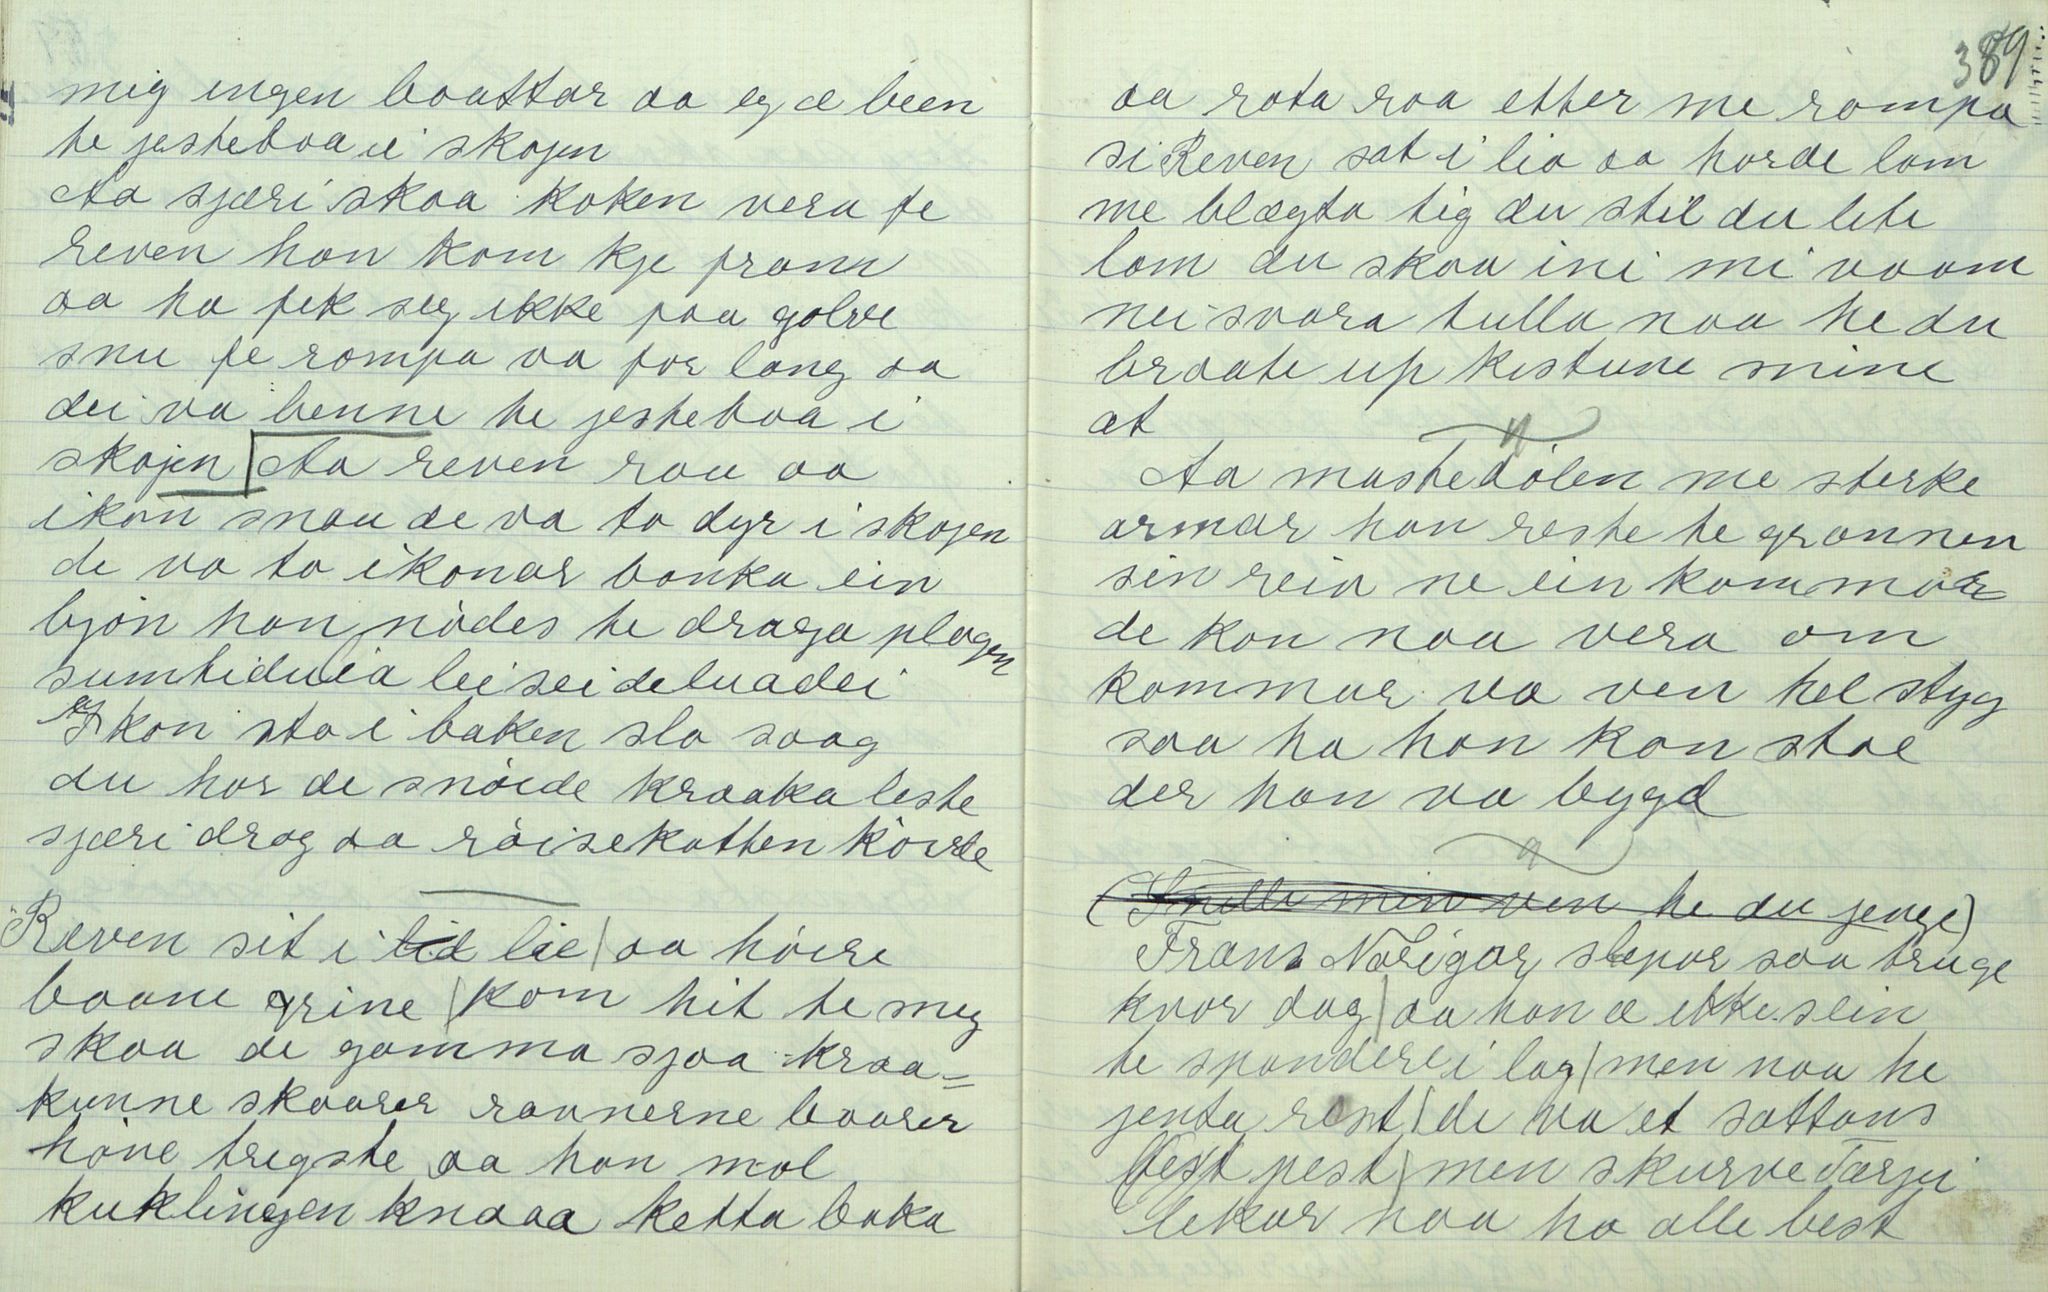 mig ingen baattar aa eg æ been
te jesteboa i skogen
Aa sjæri skaa koken vera fe
reven han kom kje fram
aa ha fek seg ikke paa golve
snu fe rompa va for lang aa
dei va benne te jesteboa i
skojen Aa reven rau aa
ikon snau de va to dyr i skojen
de va to ikonar banka ein
bjön han nödes te draga plogen
Ikon sto i baken slo saag
du har de snöide kraaka leste
sjæri drog aa röisekatten köirde
Ræven sit i lie aa höire
baane grine kom hit te meg
skaa de gamma sjaa kraa=
kunne skaarer ravnerne baarer
höne tregste aa han mol
kuklingen knaaa ketta baka
389
aa rota raa etter me rompa
si Reven sat i lia aa horde lam
me blægta tig du stil du lete
lam du skaa ini mi vaam
nei svara tulla naa he du
braate up kistune mine
at
Aa mastedölen me sterke
armar han reste te grannen
sin reiv ne ein kammar
de kan naa vera om
kammar va ven hel styg
saa ha han kan stae
der han va bygd
(Snille min ven he du jenge)
Frans Norigar slepar saa truge
kvar dag aa han æ ikke sein
te spandere i lag men naa he
jenta rest de va et sattans
pest men skurve Tærjei
lekar naa ha alle best